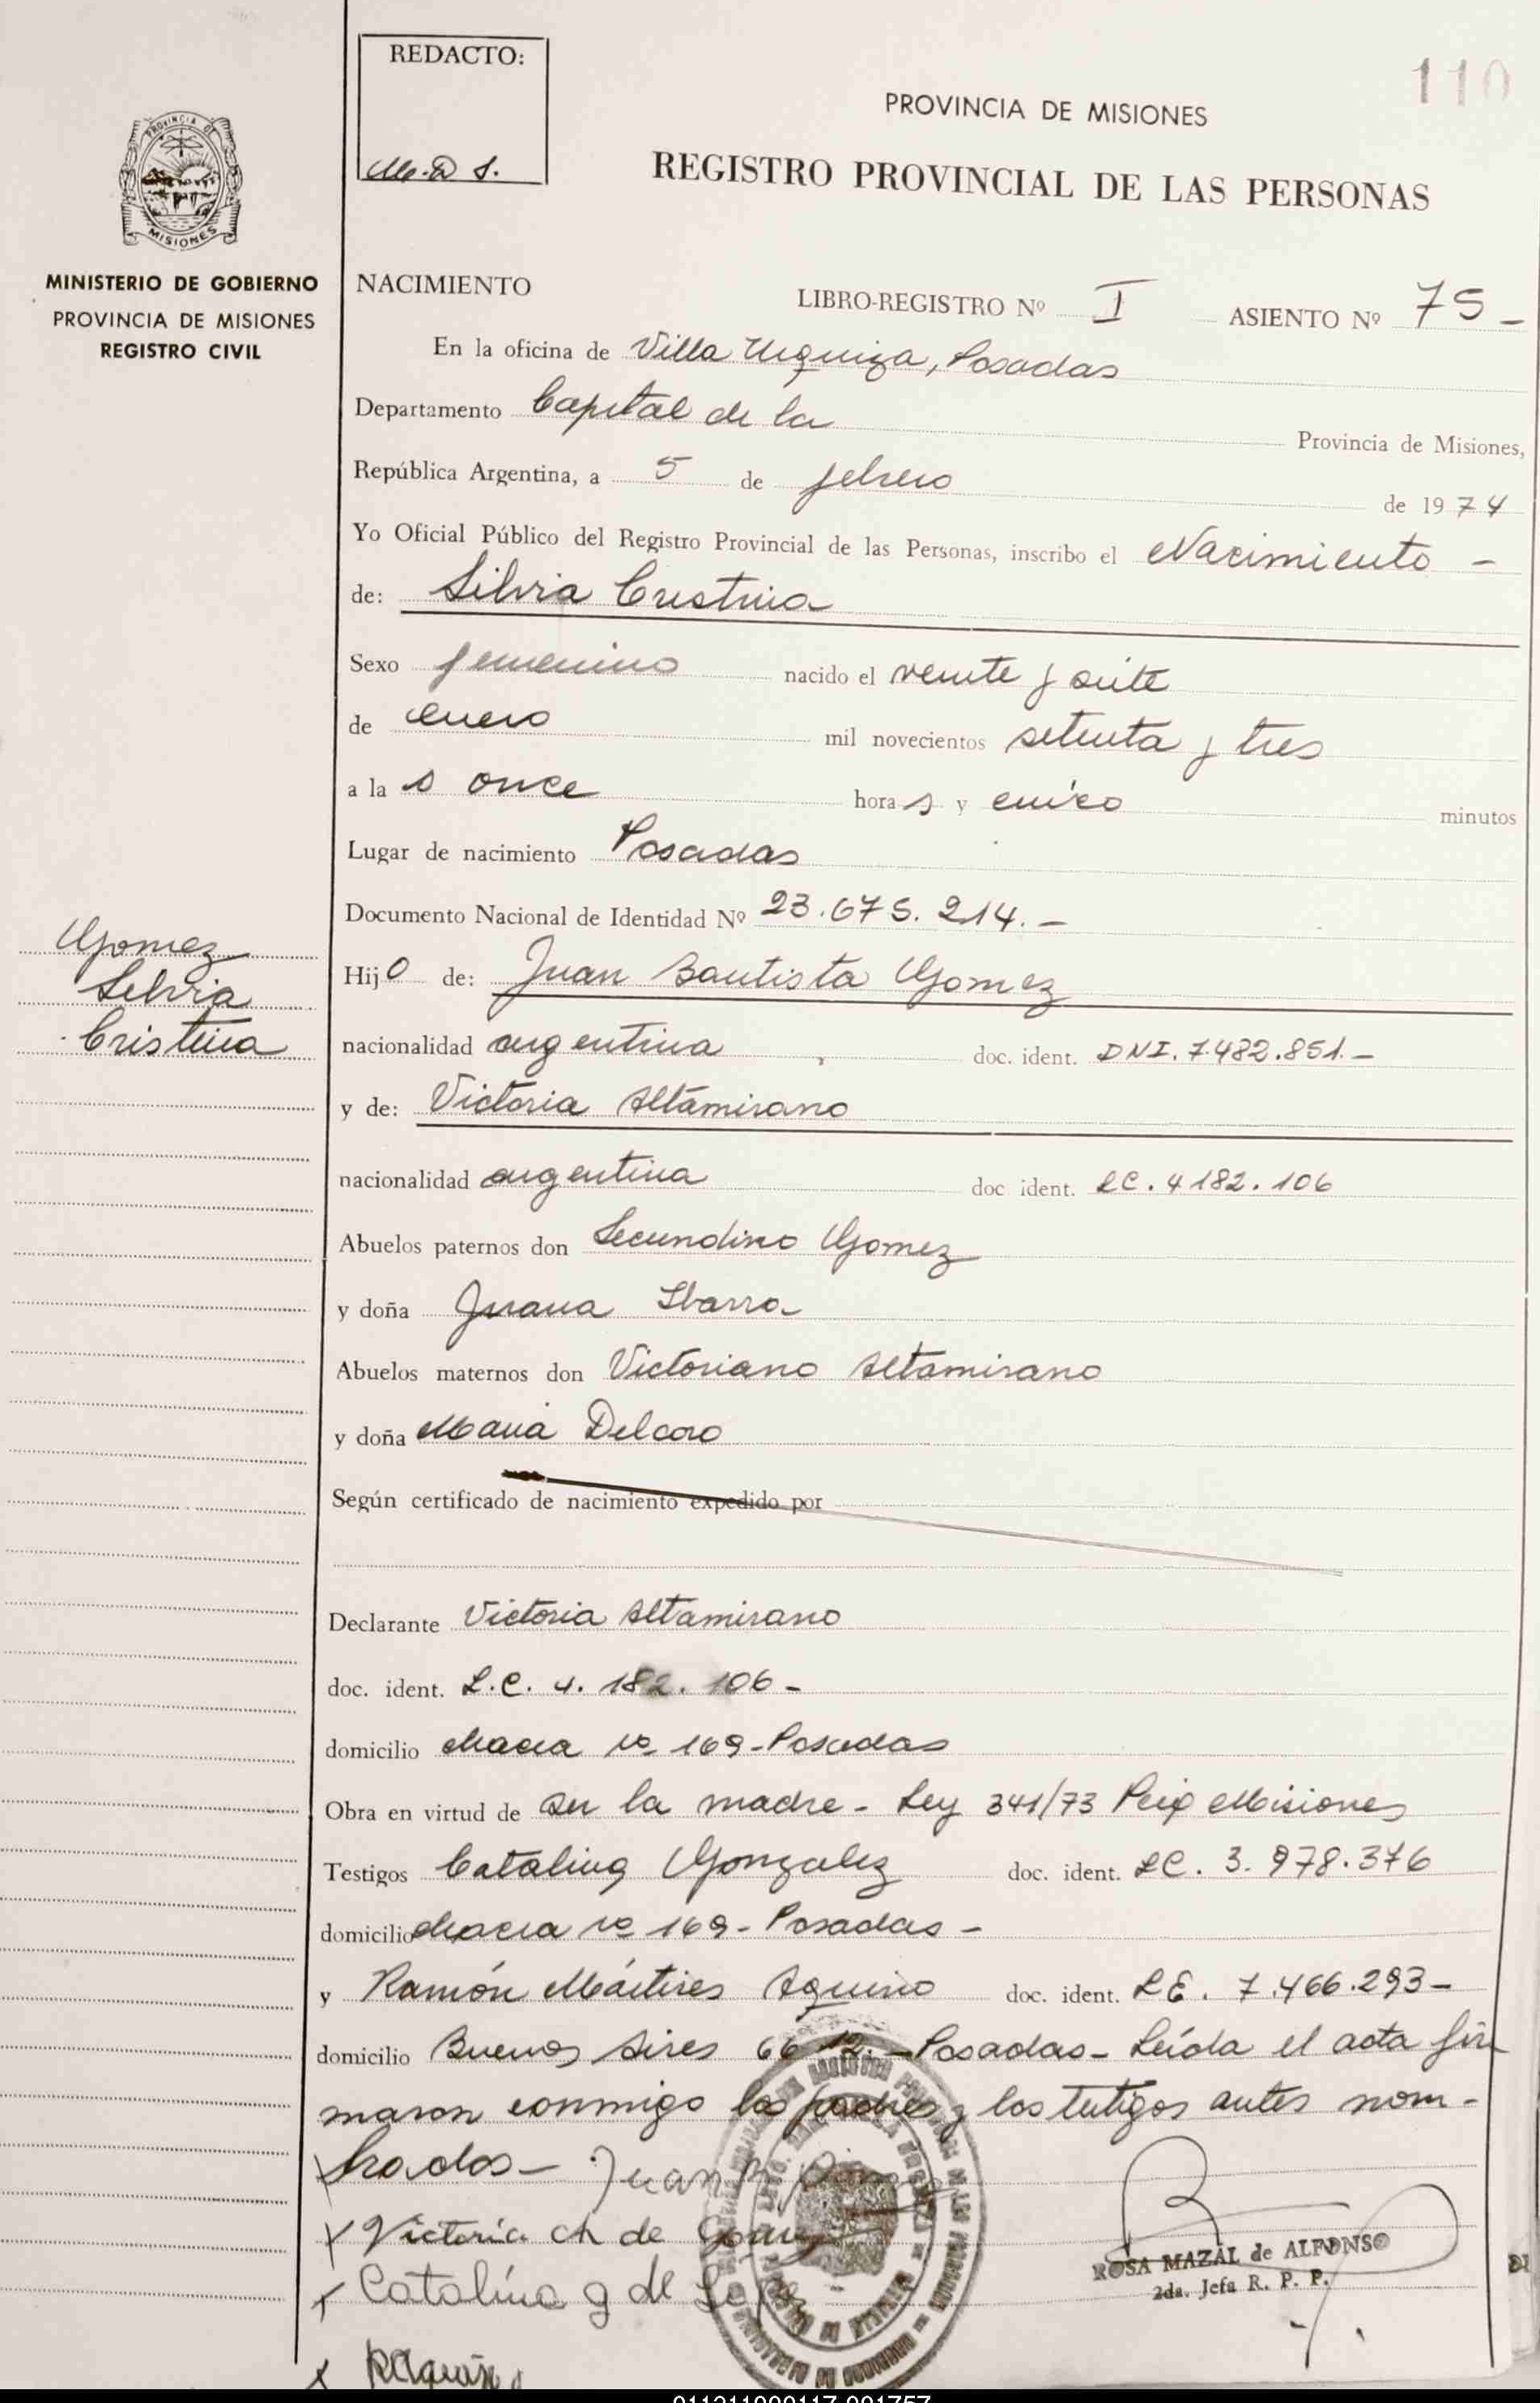 110
REDACTO:
M.D S.
PROVINCIA DE MISIONES
REGISTRO PROVINCIAL DE LAS PERSONAS
PROVINCIA DE
MISIONES
MINISTERIO DE GOBIERNO
PROVINCIA DE MISIONES
REGISTRO CIVIL
NACIMIENTO LIBRO-REGISTRO Nº I ASIENTO Nº 75-
En la oficina de Villa Urquiza, Posadas
Departamento Capital de la Provincia de Misiones,
República Argentina, a 5 de febrero de 1974
Yo Oficial Público del Registro Provincial de las Personas, inscribo el Nacimiento -
de: Silvia Cristina
Sexo femenino nacido el veinte y siete
de enero mil novecientos setenta y tres
a la s once hora s y cinco minutos
Lugar de nacimiento Posadas
Documento Nacional de Identidad Nº 23.675.214.-
Gomez
Silvia
Cristina
Hijo de: Juan Bautista Gomez
nacionalidad argentina doc. ident. DNI. 7.482.851.-
y de: Victoria Altamirano
nacionalidad argentina doc ident. LC. 4182.106
Abuelos paternos don Secundino Gomez
y doña Juana Ibarra
Abuelos maternos don Victoriano Altamirano
y doña Maria Delcoro
Según certificado de nacimiento expedido por
Declarante Victoria Altamirano
doc. ident. L.C. 4. 182. 106-
domicilio chacra nº 169-Posadas
Obra en virtud de ser la madre- Ley 341/73 Misiones
Testigos Catalina Gonzalez doc. ident. LC. 3.978.376
domicilio chacra nº 169-Posadas-
y Ramón Mártires Aquino doc. ident. LE. 7.466.293-
domicilio Buenos Aires 6612.-Posadas- Leída el acta fir
maron conmigo los padres y los testigos antes nom-
brados- Juan
Victoria de
Catalina g de
ROSA MAZAL de ALFONSO
2da. Jefa R. P. P.
011311000117-001757